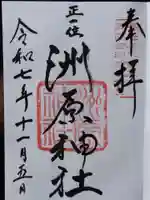 奉拝
正一位
洲原神社
令和七年十一月五日